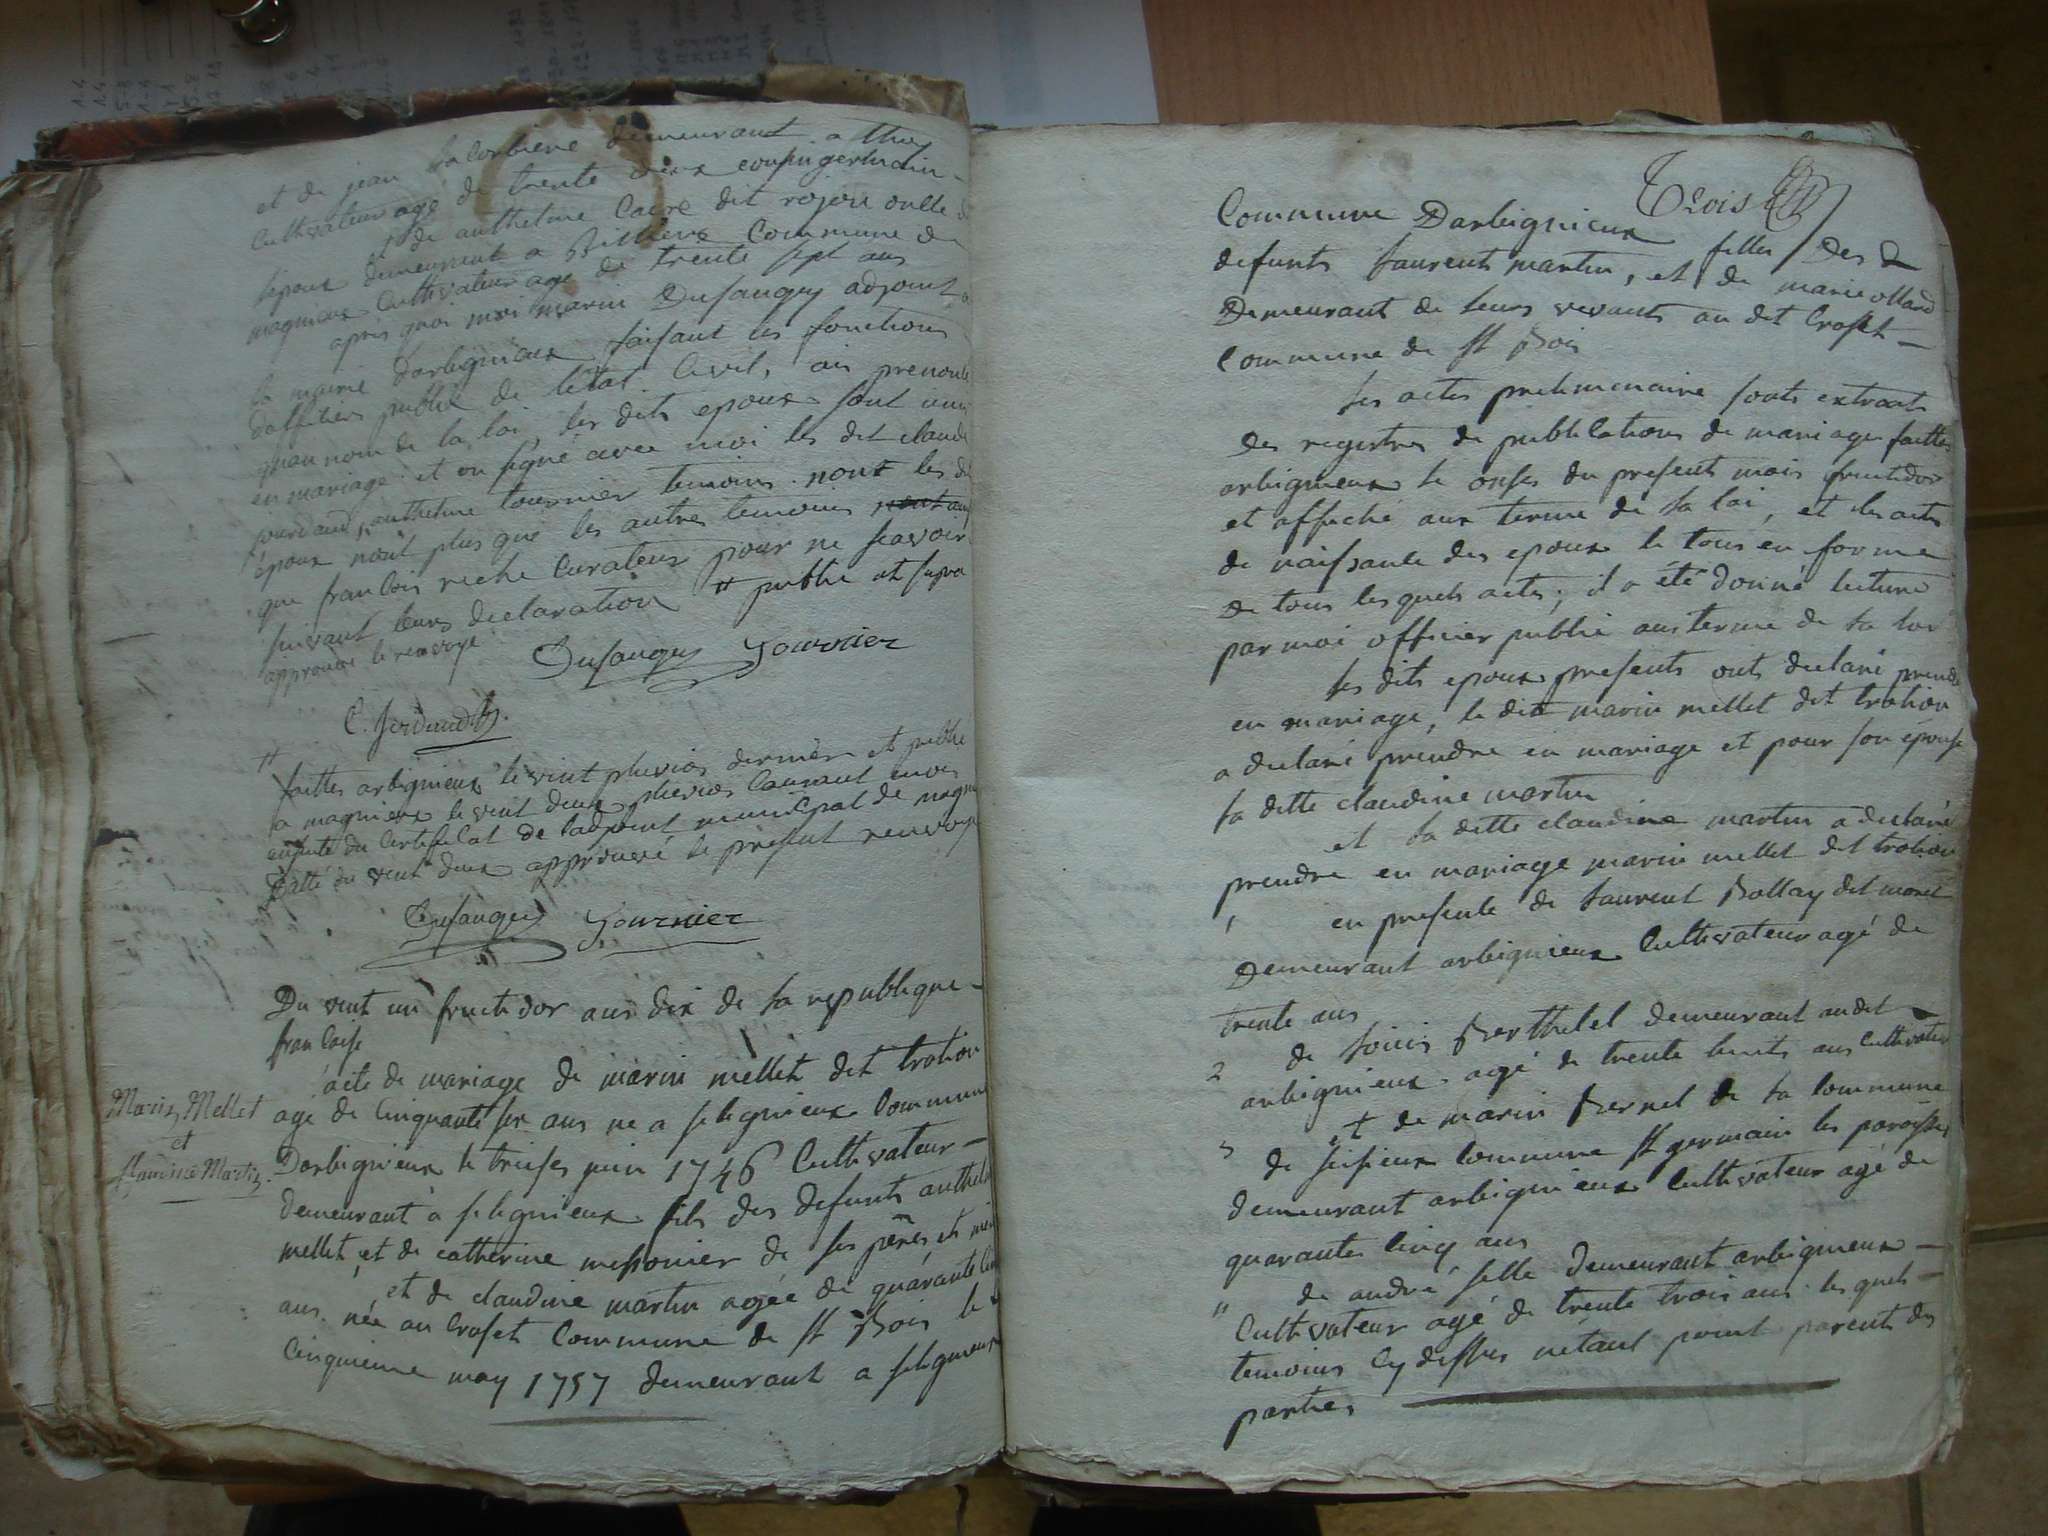 et de jean la Corbiere demeurant a
Cultivateur agé de trente deux cousin germain
et de anthelme Carre dit rojou oncle de
lepouse demeurant a Billieux Commune de
magnieux Cultivateur age de trente sept ans
apres quoi moi marin Dufauguy adjoint a
la mairie darbignieux faisant les fonctions
dofficier public de letat Civil, ais prenoncé
quau nom de la loi, les dits epoux sont unis
en mariage et on signé avec moi les dit claude
jourdand, anthelme tournier temoins nont les dit
époux nont plus que les autres temoins
que francois riche Curateur pour ne scavoir
suivant leurs declaration # public et supra
approuvé le renvoye
Dufauguy Tournier
C. Jordand
# faittes arbignieux le vint pluvios dernier et publié
a magnieux le vint deux pluvios Courant mois
ensuite du Certificat de ladjoint municipal de magni
datté du vint deux approuvé le présent renvoye
Dufauguy Tournier
Du vint un fructidor ans dix de la republique
francaise
Marin Mellet
et
Claudine Martin.
acte de mariage de marin mellet dit trotion
age de Cinquante six ans né a selignieux Commune
Darbignieux le treises juin 1746 Cultivateur
demeurant a selignieux fils des defunts anthelme
mellet, et de catherine messonier de ses péres et mer
et de claudine martin agée de quarante Cinq
ans née au Croset Commune de St Bois le
Cinquieme may 1757 demeurant a selignieux
Trois
Commune Darbignieux fille des
defunts Laurents martin, et de marie olland
Demeurant de leurs vivants au dit Croset
Commune de St Bois
les actes preliminaire sonts extraits
des registres de publications de mariage faittes
arbignieux le onses du present mois fructidor
et affiché aux terme de la loi, et les actes
de naissance des epoux le tous en forme
de tous les quels actes; il a été donné lecture
par moi officier public aus terme de la loi
les dits epoux presents onts declaré prendre
en mariage, le dit marin mellet dit trotion
a declaré prendre en mariage et pour son épouse
la ditte claudine martin
et la ditte claudine martin a declaré
prendre en mariage marin mellet dit trotion
1 en presence de laurent Bollay dit morel
Demeurant arbignieux Cultivateur agé de
trente ans
2 de louis Berthelet demeurant audit
arbignieux agé de trente huits ans Cultivateur
3 et de marin Bernel de la Commune
de seisieux Commune St germain les paroisses
demeurant arbignieux Cultivateur agé de
quarantes Cinq ans
4 de andré selle demeurant arbignieux
Cultivateur agé de trente trois ans les quels
temoins Cy dessus netant point parent des
parties